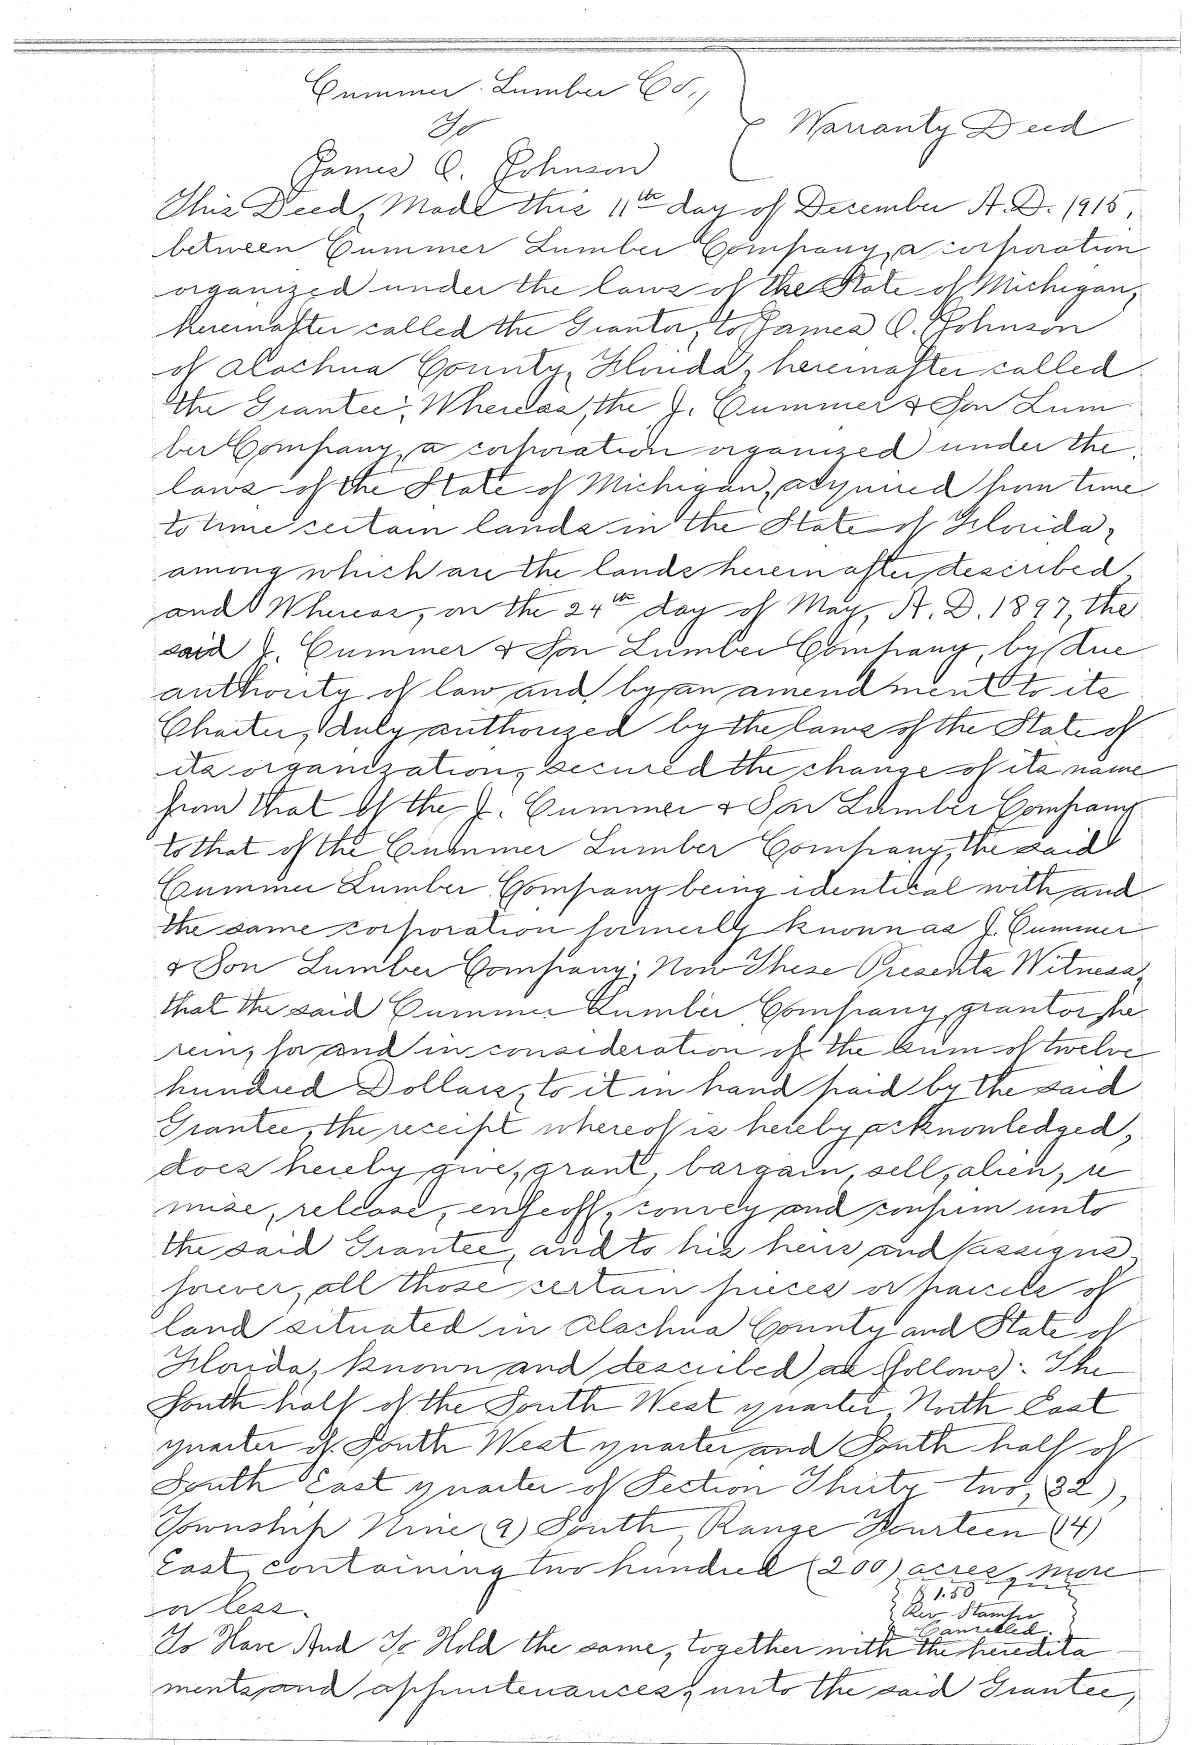 Cummer Lumber Co.,
To
Warranty Deed
James C. Johnson
This Deed, Made this 11th day of December A. D. 1915,
between Cummer Lumber Company, a corporation
organized under the laws of the State of Michigan,
hereinafter called the Grantor, to James C. Johnson
of Alachua County, Florida, hereinafter called
the Grantee; Whereas, the J. Cummer & Son Lum
ber Company, a corporation organized under the
laws of the State of Michigan, acquired from time
to time certain lands in the State of Florida,
among which are the lands hereinafter described,
and Whereas, on the 24th day of May, A. D. 1897, the
said J. Cummer & Son Lumber Company, by due
authority of law and by an amendment to its
Charter, duly authorized by the laws of the State of
its organization, secured the change of its name
from that of the J. Cummer & Son Lumber Company
to that of the Cummer Lumber Company, the said
Cummer Lumber Company being identical with and
the same corporation formerly known as J. Cummer
& Son Lumber Company; Now These Presents Witness,
that the said Cummer Lumber Company, grantor he
rein, for and in consideration of the sum of twelve
hundred Dollars, to it in hand paid by the said
Grantee, the receipt whereof is hereby acknowledged,
does hereby give, grant, bargain, sell, alien, re
mise, release, enfeoff, convey and confirm unto
the said Grantee, and to his heirs and assigns
forever, all those certain pieces or parcels of
land situated in Alachua County and State of
Florida, known and described as follows: The
South half of the South West quarter, North East
quarter of South West quarter and South half of
South East quarter of Section Thirty two, (32),
Township Nine (9) South, Range Fourteen (14)
East, containing two hundred (200) acres, more
or less.
$1.50
Rev. Stamps
Cancelled.
To Have And To Hold the same, together with the heredita
ments and appurtenances, unto the said Grantee,